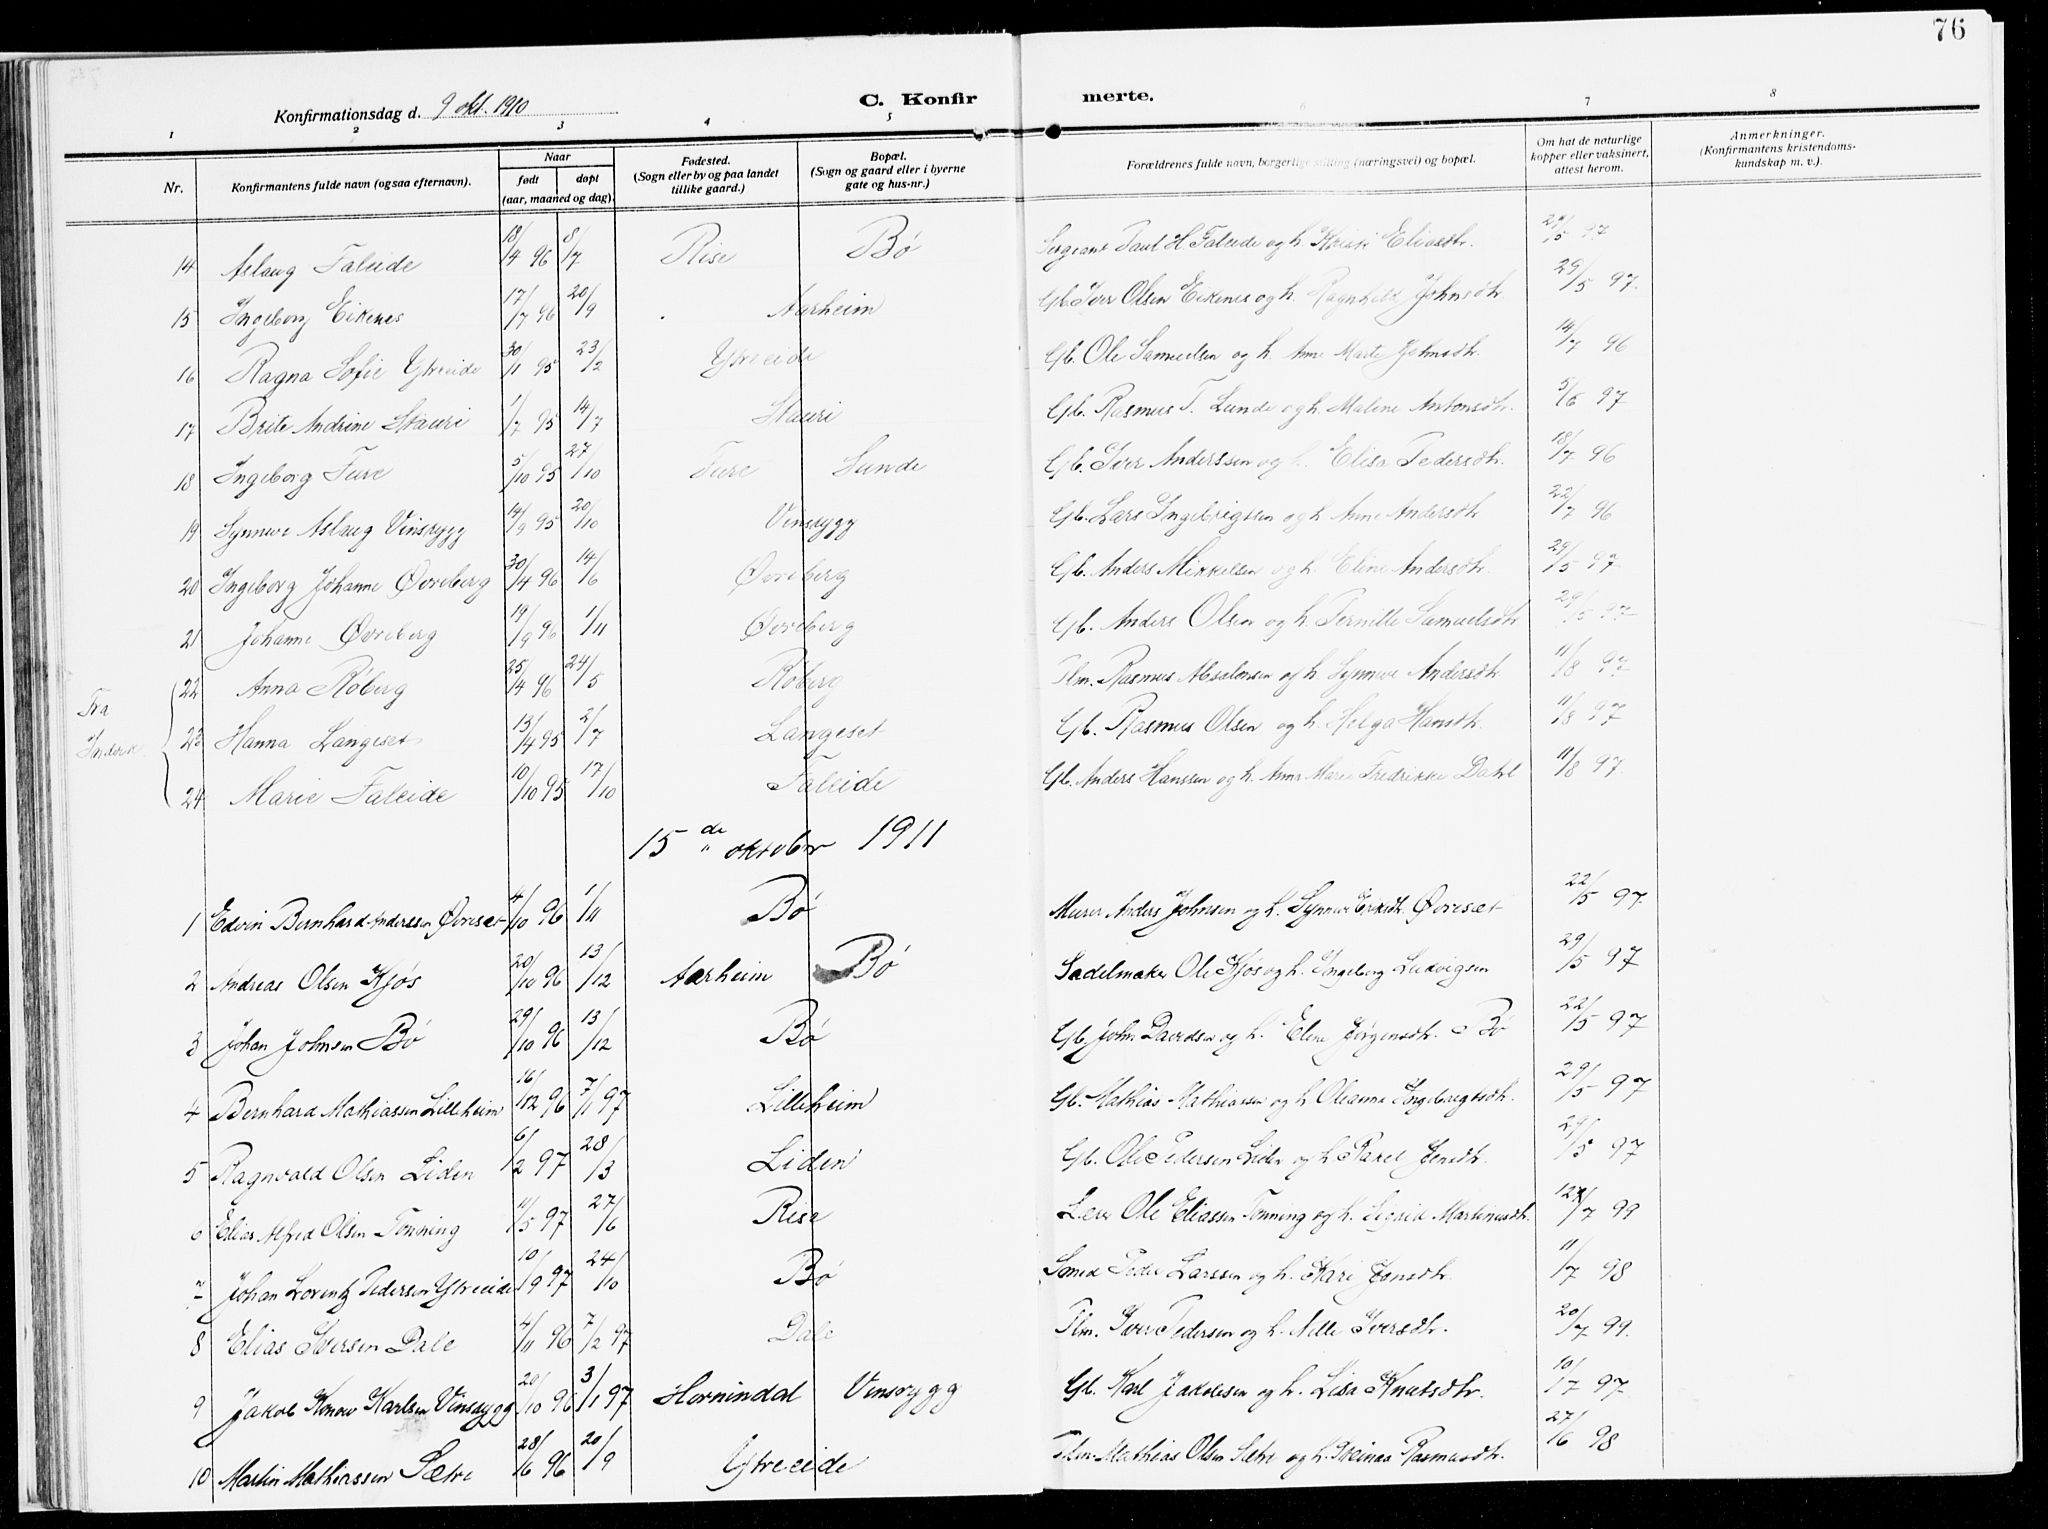 76
Konfirmationsdag d. 9 okt. 1910 C. Konfirmerte.
1 2 3 4 5 6 7 8
Nr. Konfirmantens fulde navn (ogsaa efternavn). Naar født døpt (aar, maaned og dag). Fødested. (Sogn eller by og paa landet tillike gaard.) Bopæl. (Sogn og gaard eller i byerne gate og hus-nr.) Forældrenes fulde navn, borgerlige stilling (næringsvei) og bopæl. Om hat de naturlige kopper eller vaksinert, attest herom. Anmerkninger. (Konfirmantens kristendomskundskap m. v.).
14 Aslaug Faleide 18/4 96 8/7 Rise Bø Sergeant Paul H Faleide og h. Eliasdtr. 29/5 97
15 Ingeborg Eikenes 17/7 96 20/9 Aarheim Gb. Iver Olsen Eikenes og h. Ragnhild Johnsdtr. 29/5 97
16 Ragna Sofie Ytreeide 30/1 95 23/2 Ytreeide Gb. Ole Samuelsen og h. Anne Marte Johnsdtr. 14/7 96
17 Brite Andrine Stauri 1/7 95 14/7 Stauri Gb. Rasmus T. Lunde og h. Malene Antonsdtr. 5/6 97
18 Ingeborg Fure 5/10 95 27/10 Fure Sunde Gb. Iver Anderssen og h. Elisa Pedersdtr. 18/7 96
19 Synneve Aslaug Vinsrygg 14/9 95 20/10 Vinsrygg Gb. Lars Ingebrigtsen og h. Anne Andersdtr 22/7 96
20 Ingeborg Johanne Øvreberg 30/4 96 14/6 Øvreberg Gb. Anders Mikkelsen og h. Eline Andersdtr. 29/5 97
21 Johanne Øvreberg 19/9 96 1/11 Øvreberg Gb. Anders Olsen og h. Pernille Samuelsdtr 29/5 97
Fra Indvik
22 Anna Roberg 25/4 96 24/5 Roberg Plm. Rasmus Absalonsen og h. Synneve Andersdtr. 11/8 97
23 Hanna Langeset 13/4 95 2/7 Langeset Gb. Rasmus Olsen og h. Helga Hansdtr. 11/8 97
24 Marie Faleide 10/10 95 17/10 Faleide Gb. Anders Hanssen og h. Anna Marie Fredrikke Dahl 11/8 97
15de oktober 1911
1 Edvin Bernhard Anderssen Øvreset 4/10 96 1/11 Bø Murer Anders Johnsen og h. Synneve Eriksdtr. Øvreset 22/5 97
2 Andreas Olsen Kjøs 20/10 96 13/12 Aarheim Bø Sadelmaker Ole Kjøs og h. Ingeborg Ludvigsen 29/5 97
3 Johan Johnsen Bø 29/10 96 13/12 Bø Gb. John Davidsen og h. Eline Jørgensdtr. Bø 22/5 97
4 Bernhard Mathiassen Lilleheim 16/12 96 7/1 97 Lilleheim Gb. Mathias Mathiassen og h. Oleanna Ingebrigtsdtr. 29/5 97
5 Ragnvald Olsen Liden 6/2 97 28/3 Liden Gb. Ole Pedersen Liden og h. Rakel Jensdtr. 29/5 97
6 Elias Alfred Olsen Tonning 11/5 97 27/6 Rise Lærer Ole Eliassen Tonning og h. Sigrid Martinusdtr. 12/7 99
7 Johan Lorentz Pedersen Ytreeide 10/9 97 24/10 Bø Smed Peder Larssen og h. Kari Jonsdtr. 11/7 98
8 Elias Iversen Dale 4/11 96 7/2 97 Dale Plm. Iver Pedersen og h. Nille Iversdtr. 20/7 99.
9 Jakob Konow Karlsen Vinsrygg 20/10 96 3/1 97 Hornindal Vinsrygg Gb. Karl Jakobsen og h. Lisa Knutsdtr. 10/7 97
10 Martin Mathiassen Sætre 28/6 96 20/9 Ytreeide Plm. Mathias Olsen Sætre og h. Rasmusdtr. 27/6 98